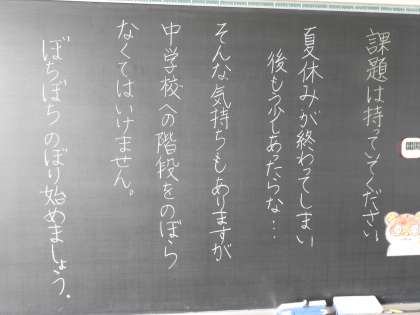 課題は持っていてください
夏休みが終わってしまい
後もう少しあったらな…
そんな気持ちもありますが
中学校への階段をのぼら
なくてはいけません。
ぼちぼちのぼり始めましょう。